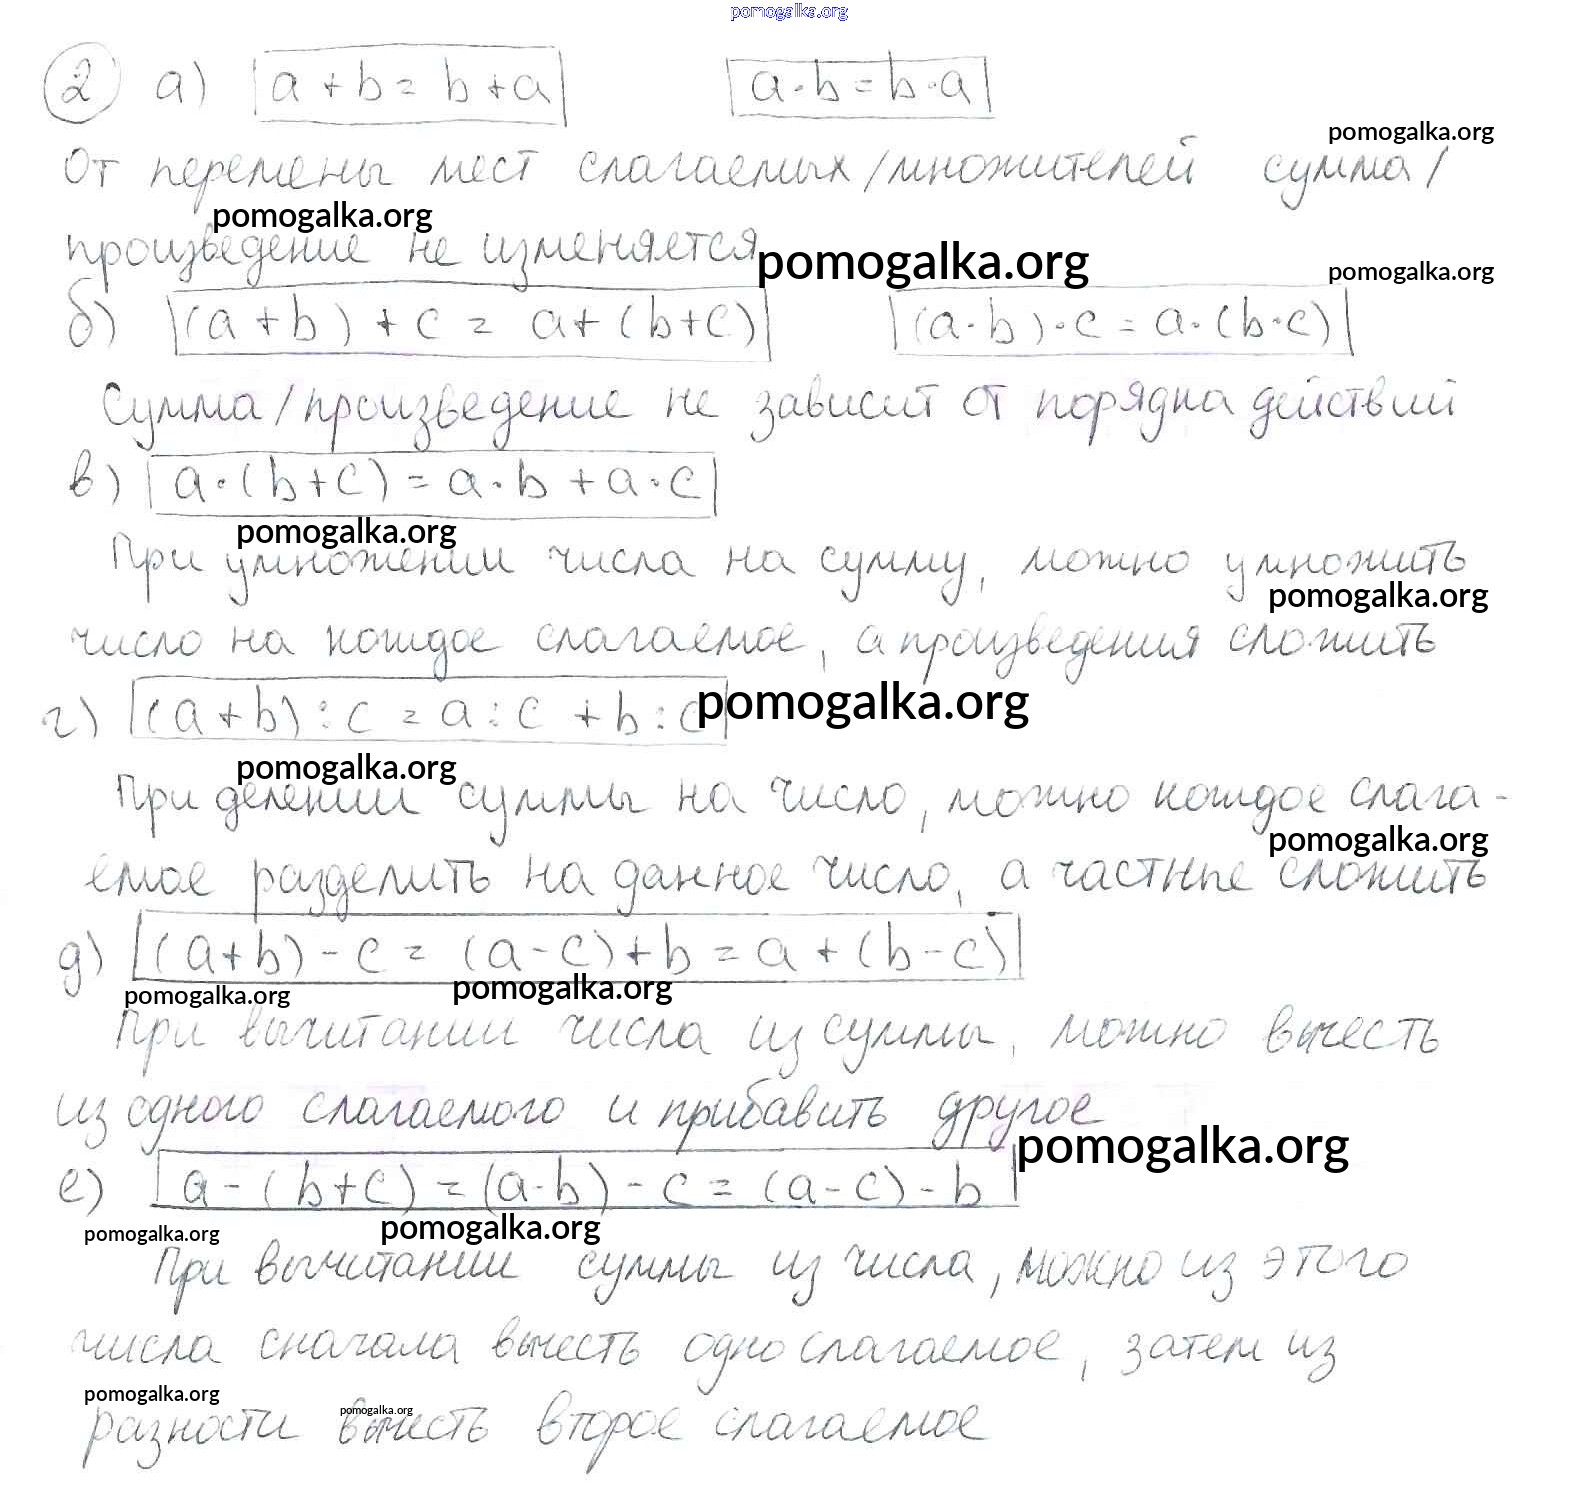 pomogalka.org
2 а) a + b = b + a a · b = b · a
pomogalka.org
От перемены мест слагаемых/множителей сумма/
pomogalka.org
произведение не изменяется
pomogalka.org pomogalka.org
б) (a + b) + c = a + (b + c) (a · b) · c = a · (b · c)
Сумма/произведение не зависит от порядка действий
в) a · (b + c) = a · b + a · c
pomogalka.org
При умножении числа на сумму, можно умножить
pomogalka.org
число на каждое слагаемое, а произведения сложить
г) (a + b) : c = a : c + b : c pomogalka.org
pomogalka.org
При делении суммы на число, можно каждое слага-
pomogalka.org
емое разделить на данное число, а частные сложить
д) (a + b) - c = (a - c) + b = a + (b - c)
pomogalka.org pomogalka.org
При вычитании числа из суммы, можно вычесть
из одного слагаемого и прибавить другое
pomogalka.org
е) a - (b + c) = (a - b) - c = (a - c) - b
pomogalka.org pomogalka.org
При вычитании суммы из числа, можно из этого
числа сначала вычесть одно слагаемое, затем из
pomogalka.org pomogalka.org
разности вычесть второе слагаемое